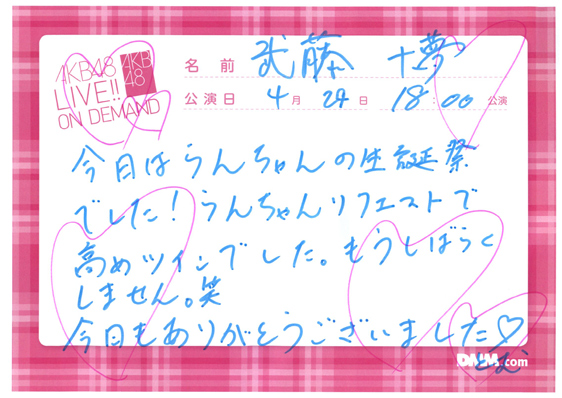 AKB48
LIVE!!
ON DEMAND
AKB
48
名前 武藤 十夢
公演日 4月24日 18:00公演
今日はうんちゃんの生誕祭
でした！うんちゃんリクエストで
高めツインでした。もうしばらく
しません。笑
今日もありがとうございました♡
とむ
DMM.com